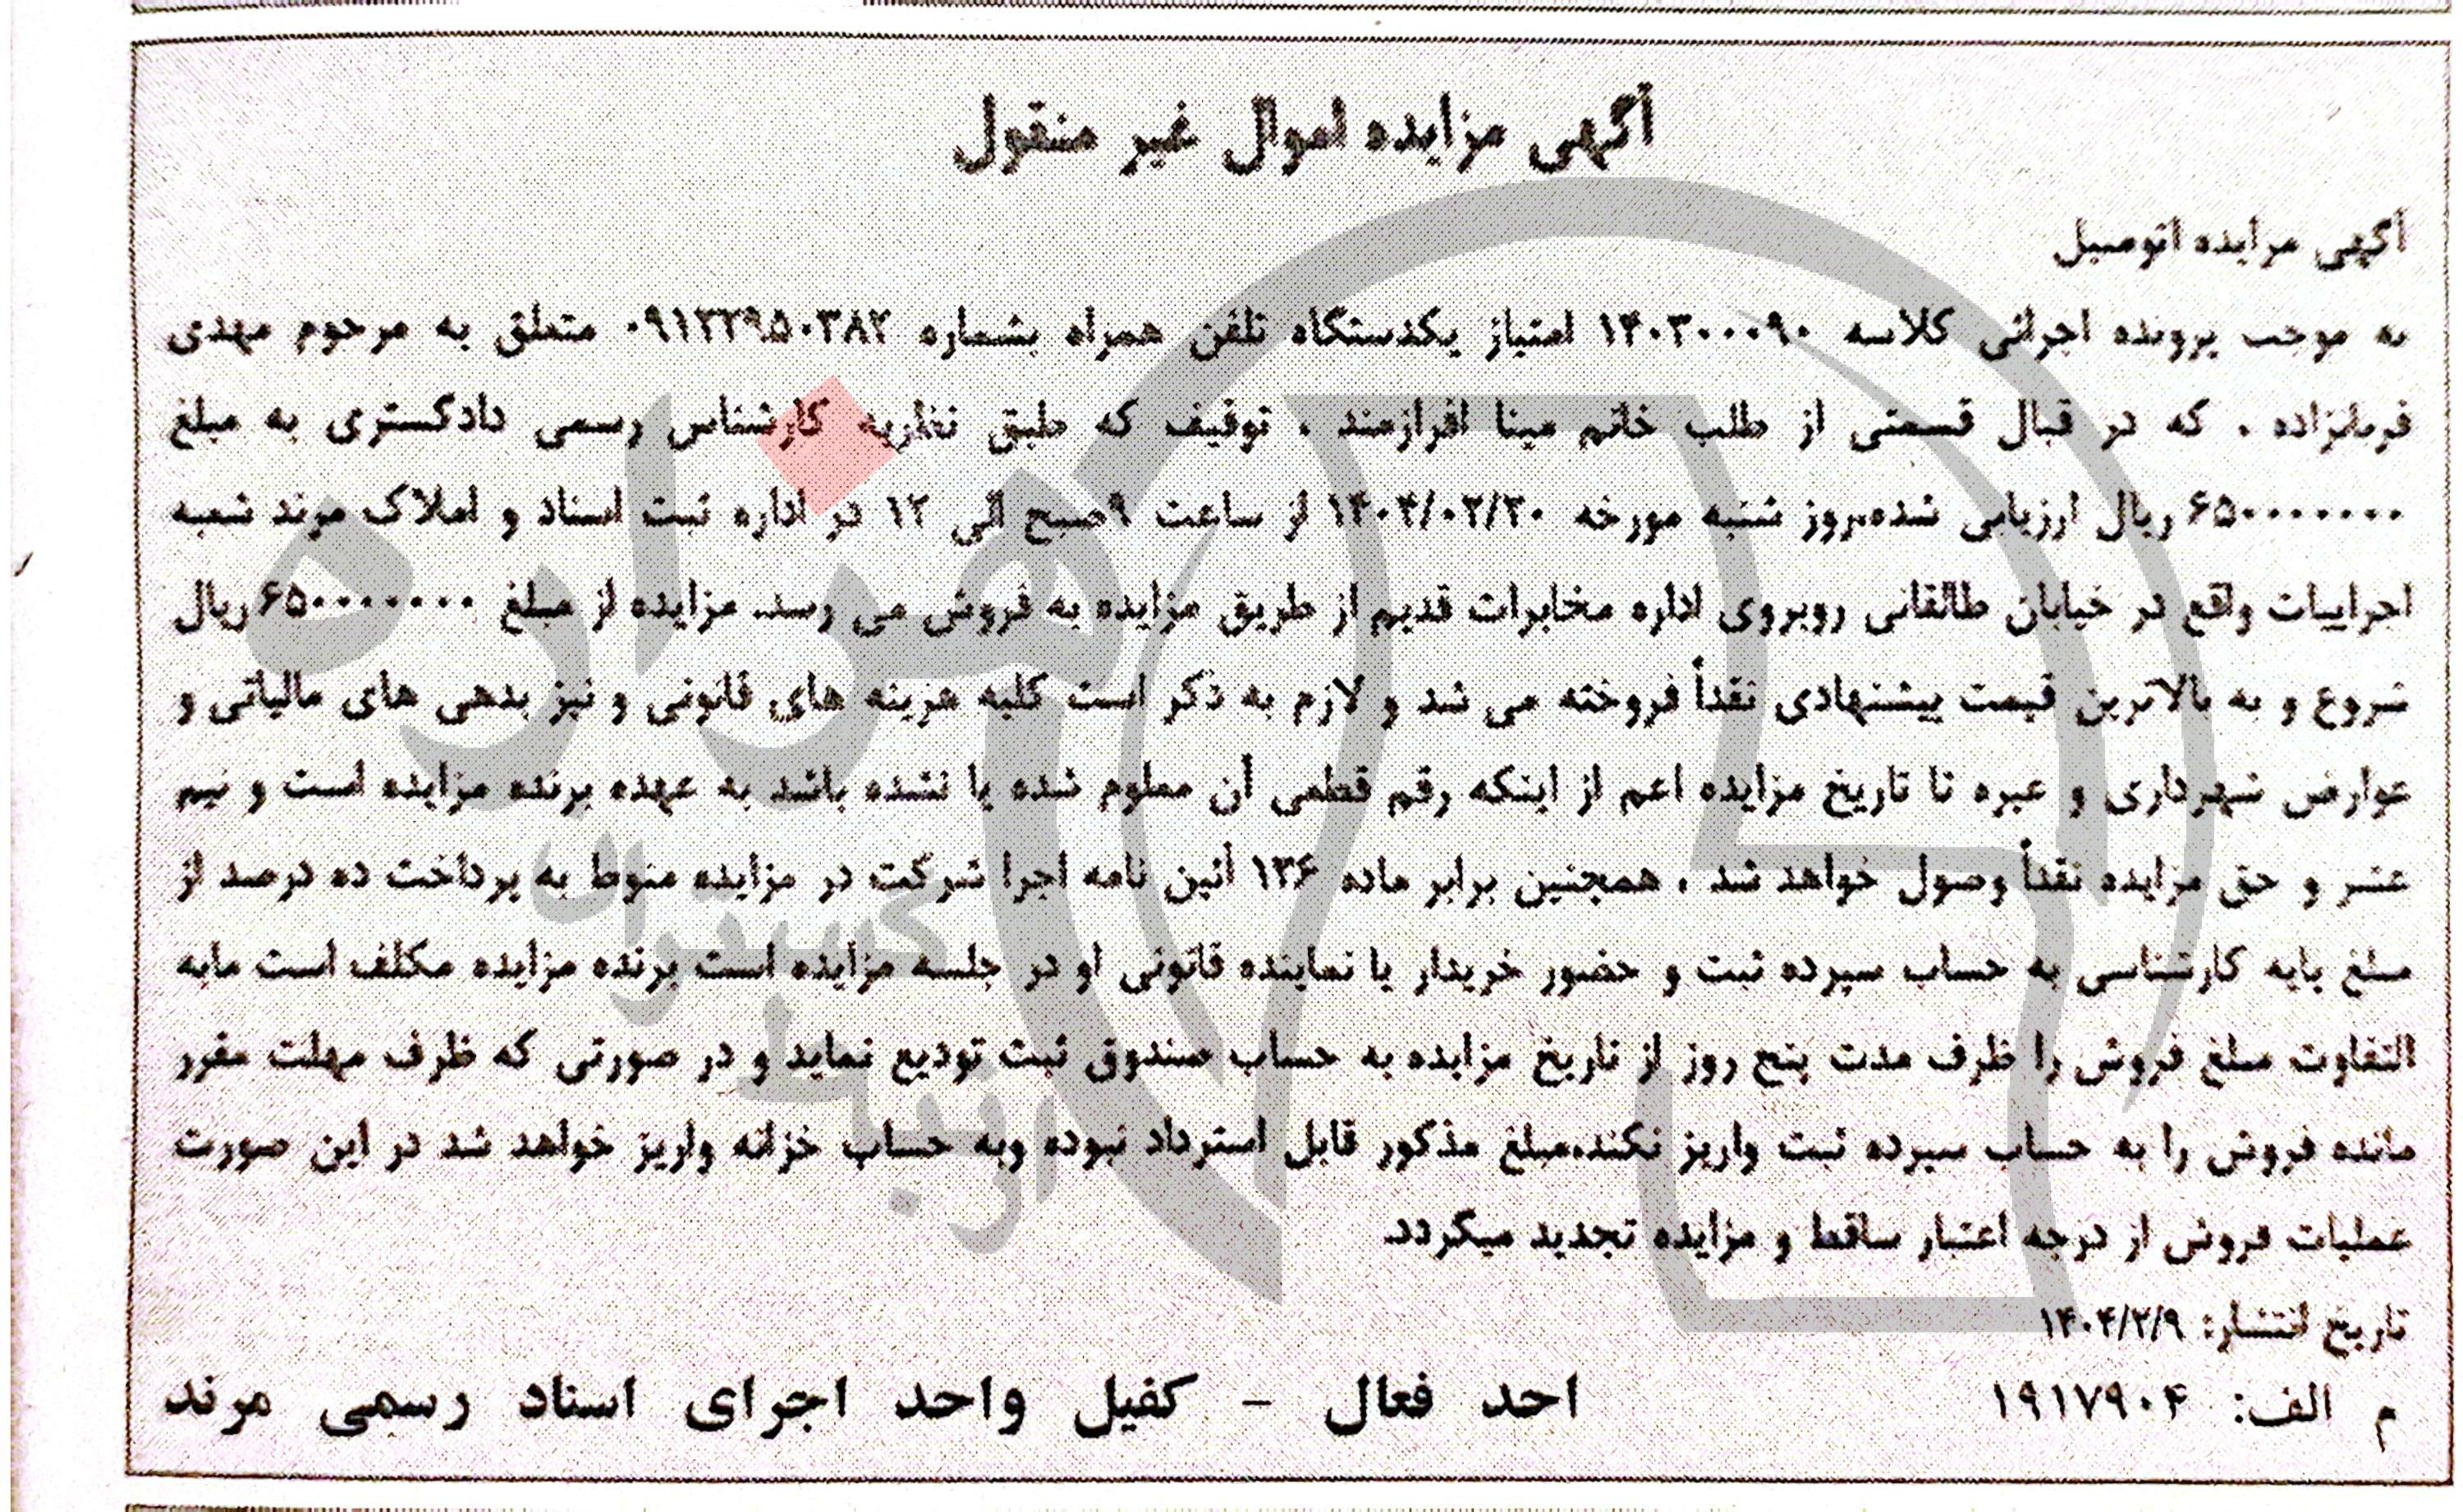 آگهی مزایده اموال غیر منقول
آگهی مزایده اتومبیل
به موجب پرونده اجرائی کلاسه ۱۴۰۳۰۰۰۹۰ امتیاز یکدستگاه تلفن همراه بشماره متعلق به مرحوم مهدی
فرمانزاده . که در قبال قسمتی از طلب خانم مینا افرازمند . توقیف که طبق نظریه کارشناس رسمی دادگستری به مبلغ
۶۵۰۰۰۰۰۰۰ ریال ارزیابی شده،روز شنبه مورخه ۱۴۰۴/۰۲/۲۰ از ساعت ۹صبح الی ۱۲ در اداره ثبت اسناد و املاک مرند شعبه
اجراییات واقع در خیابان طالقانی روبروی اداره مخابرات قدیم از طریق مزایده به فروش می رسد. مزایده از مبلغ ۶۵۰۰۰۰۰۰۰ریال
شروع و به بالاترین قیمت پیشنهادی نقداً فروخته می شد و لازم به ذکر است کلیه هزینه های قانونی و نیز بدهی های مالیاتی و
عوارض شهرداری و غیره تا تاریخ مزایده اعم از اینکه رقم قطعی آن معلوم شده یا نشده باشد به عهده برنده مزایده است و نیم
عشر و حق مزایده نقداً وصول خواهد شد . همچنین برابر ماده ۱۳۶ آئین نامه اجرا شرکت در مزایده منوط به پرداخت ده درصد از
مبلغ پایه کارشناسی به حساب سپرده ثبت و حضور خریدار یا نماینده قانونی او در جلسه مزایده است برنده مزایده مکلف است مابه
التفاوت مبلغ فروش را ظرف مدت پنج روز از تاریخ مزایده به حساب صندوق ثبت تودیع نماید و در صورتی که ظرف مهلت مقرر
مانده فروش را به حساب سپرده ثبت واریز نکند،مبلغ مذکور قابل استرداد نبوده وبه حساب خزانه واریز خواهد شد در این صورت
عملیات فروش از درجه اعتبار ساقط و مزایده تجدید میگردد.
تاریخ انتشار: ۱۴۰۴/۲/۹
م الف: ۱۹۱۷۹۰۴ احد فعال - کفیل واحد اجرای اسناد رسمی مرند
هزاره
ارتباط گستران